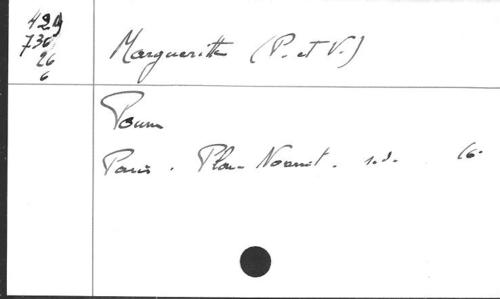 429
736
26
6
Margueritte (P. et V.)
Poum
Paris . Plon-Nourrit . s.d. 16°